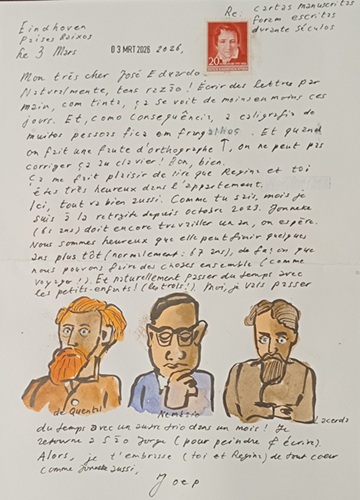 Eindhoven
Países Baixos
le 3 Mars
03 MRT 2026
2026,
20
Re: cartas manuscritas
foram escritas
durante séculos
Mon très cher José Eduardo
Naturalmente, tens razão! Écrir des lettres par
main, com tinta, ça se voit de moins en moins ces
jours. Et, como conséquência, a caligrafia de
muitos pessoas fica em frangalhos. Et quand
on fait une faute d'orthographe ↑, on ne peut pas
corriger ça au clavier! Bon, bien.
Ça me fait plaisir de lire que Regina et toi
êtes très heureux dans l'appartement.
Ici, tout va bien aussi. Comme tu sais, mois je
suis à la retraite depuis octobre 2023. Janneke
(61 ans) doit encore travailler un an, on espère.
Nous sommes heureux que elle peut finir quelques
ans plus tôt (normalement: 67 ans), de façon que
nous pouvons faire des choses ensemble (comme
voyager!). Et naturellement passer du temps avec
les petits-enfants! (les trois!) Moi, je vais passer
de Quental
Nemésio
Lacerda
du temps avec un autre trio dans un mois! Je
retourne a São Jorge (pour peindre & écrire).
Alors, je t'embrasse (toi et Regina) de tout coeur
comme Janneke aussi,
Joep